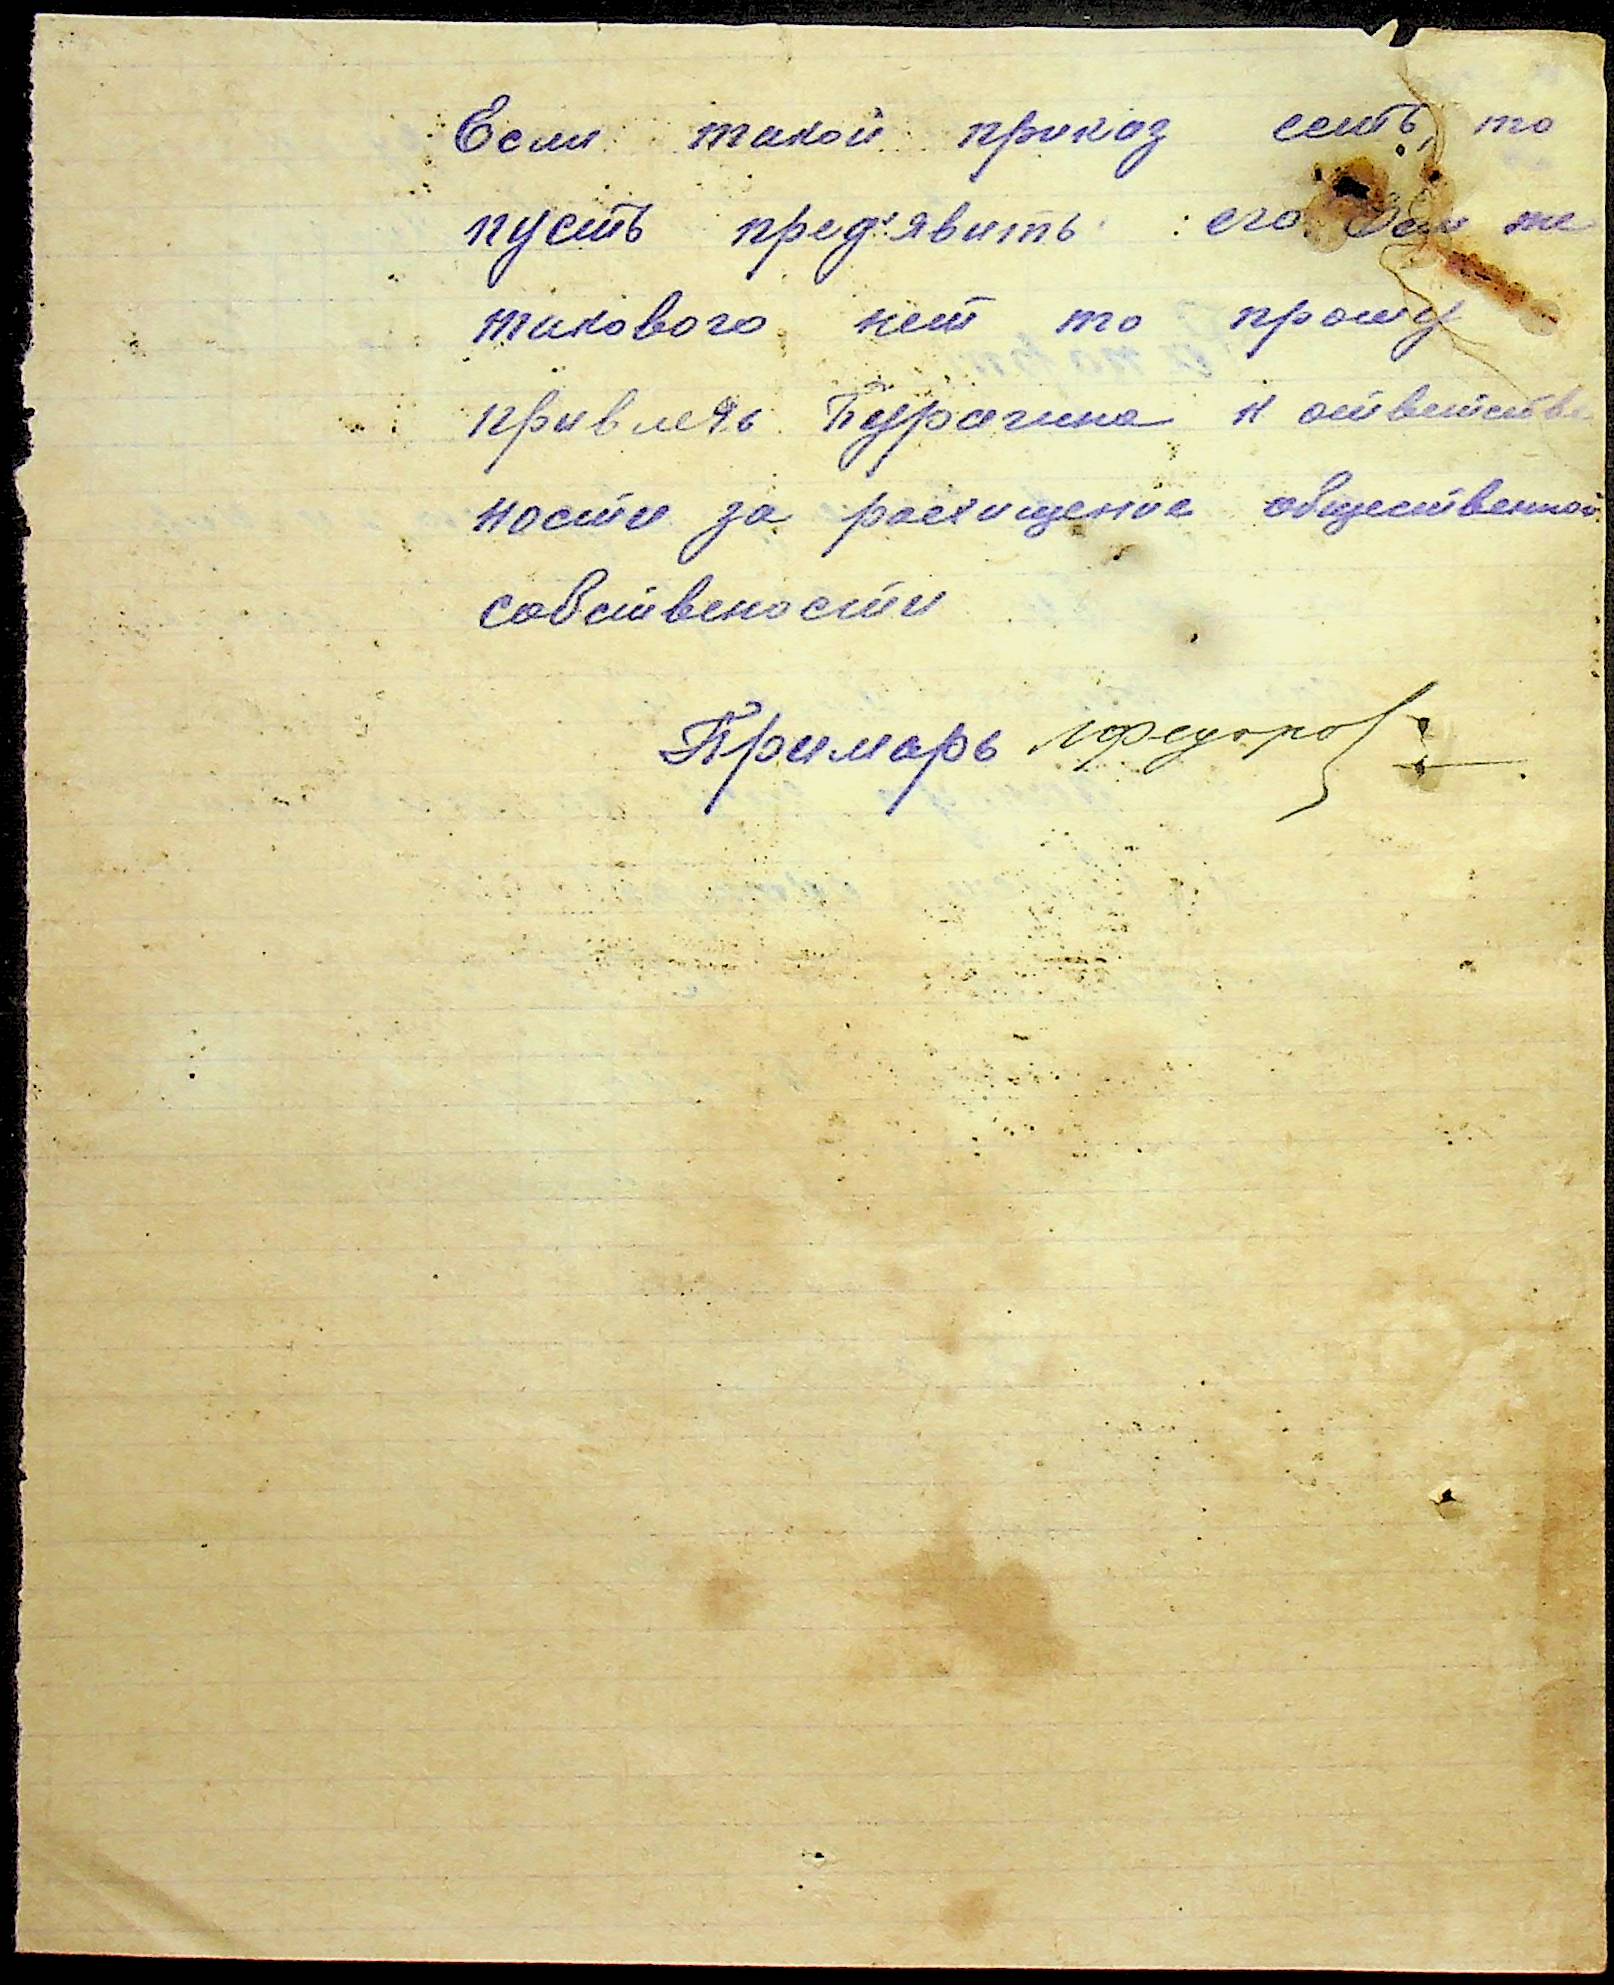 Если такой приказ есть, то
пусть пред'явить его. Если же
такового нет то прошу
привлечь Бурагина к ответствен
ности за расхищение общественной
собствености
Примарь Федоров